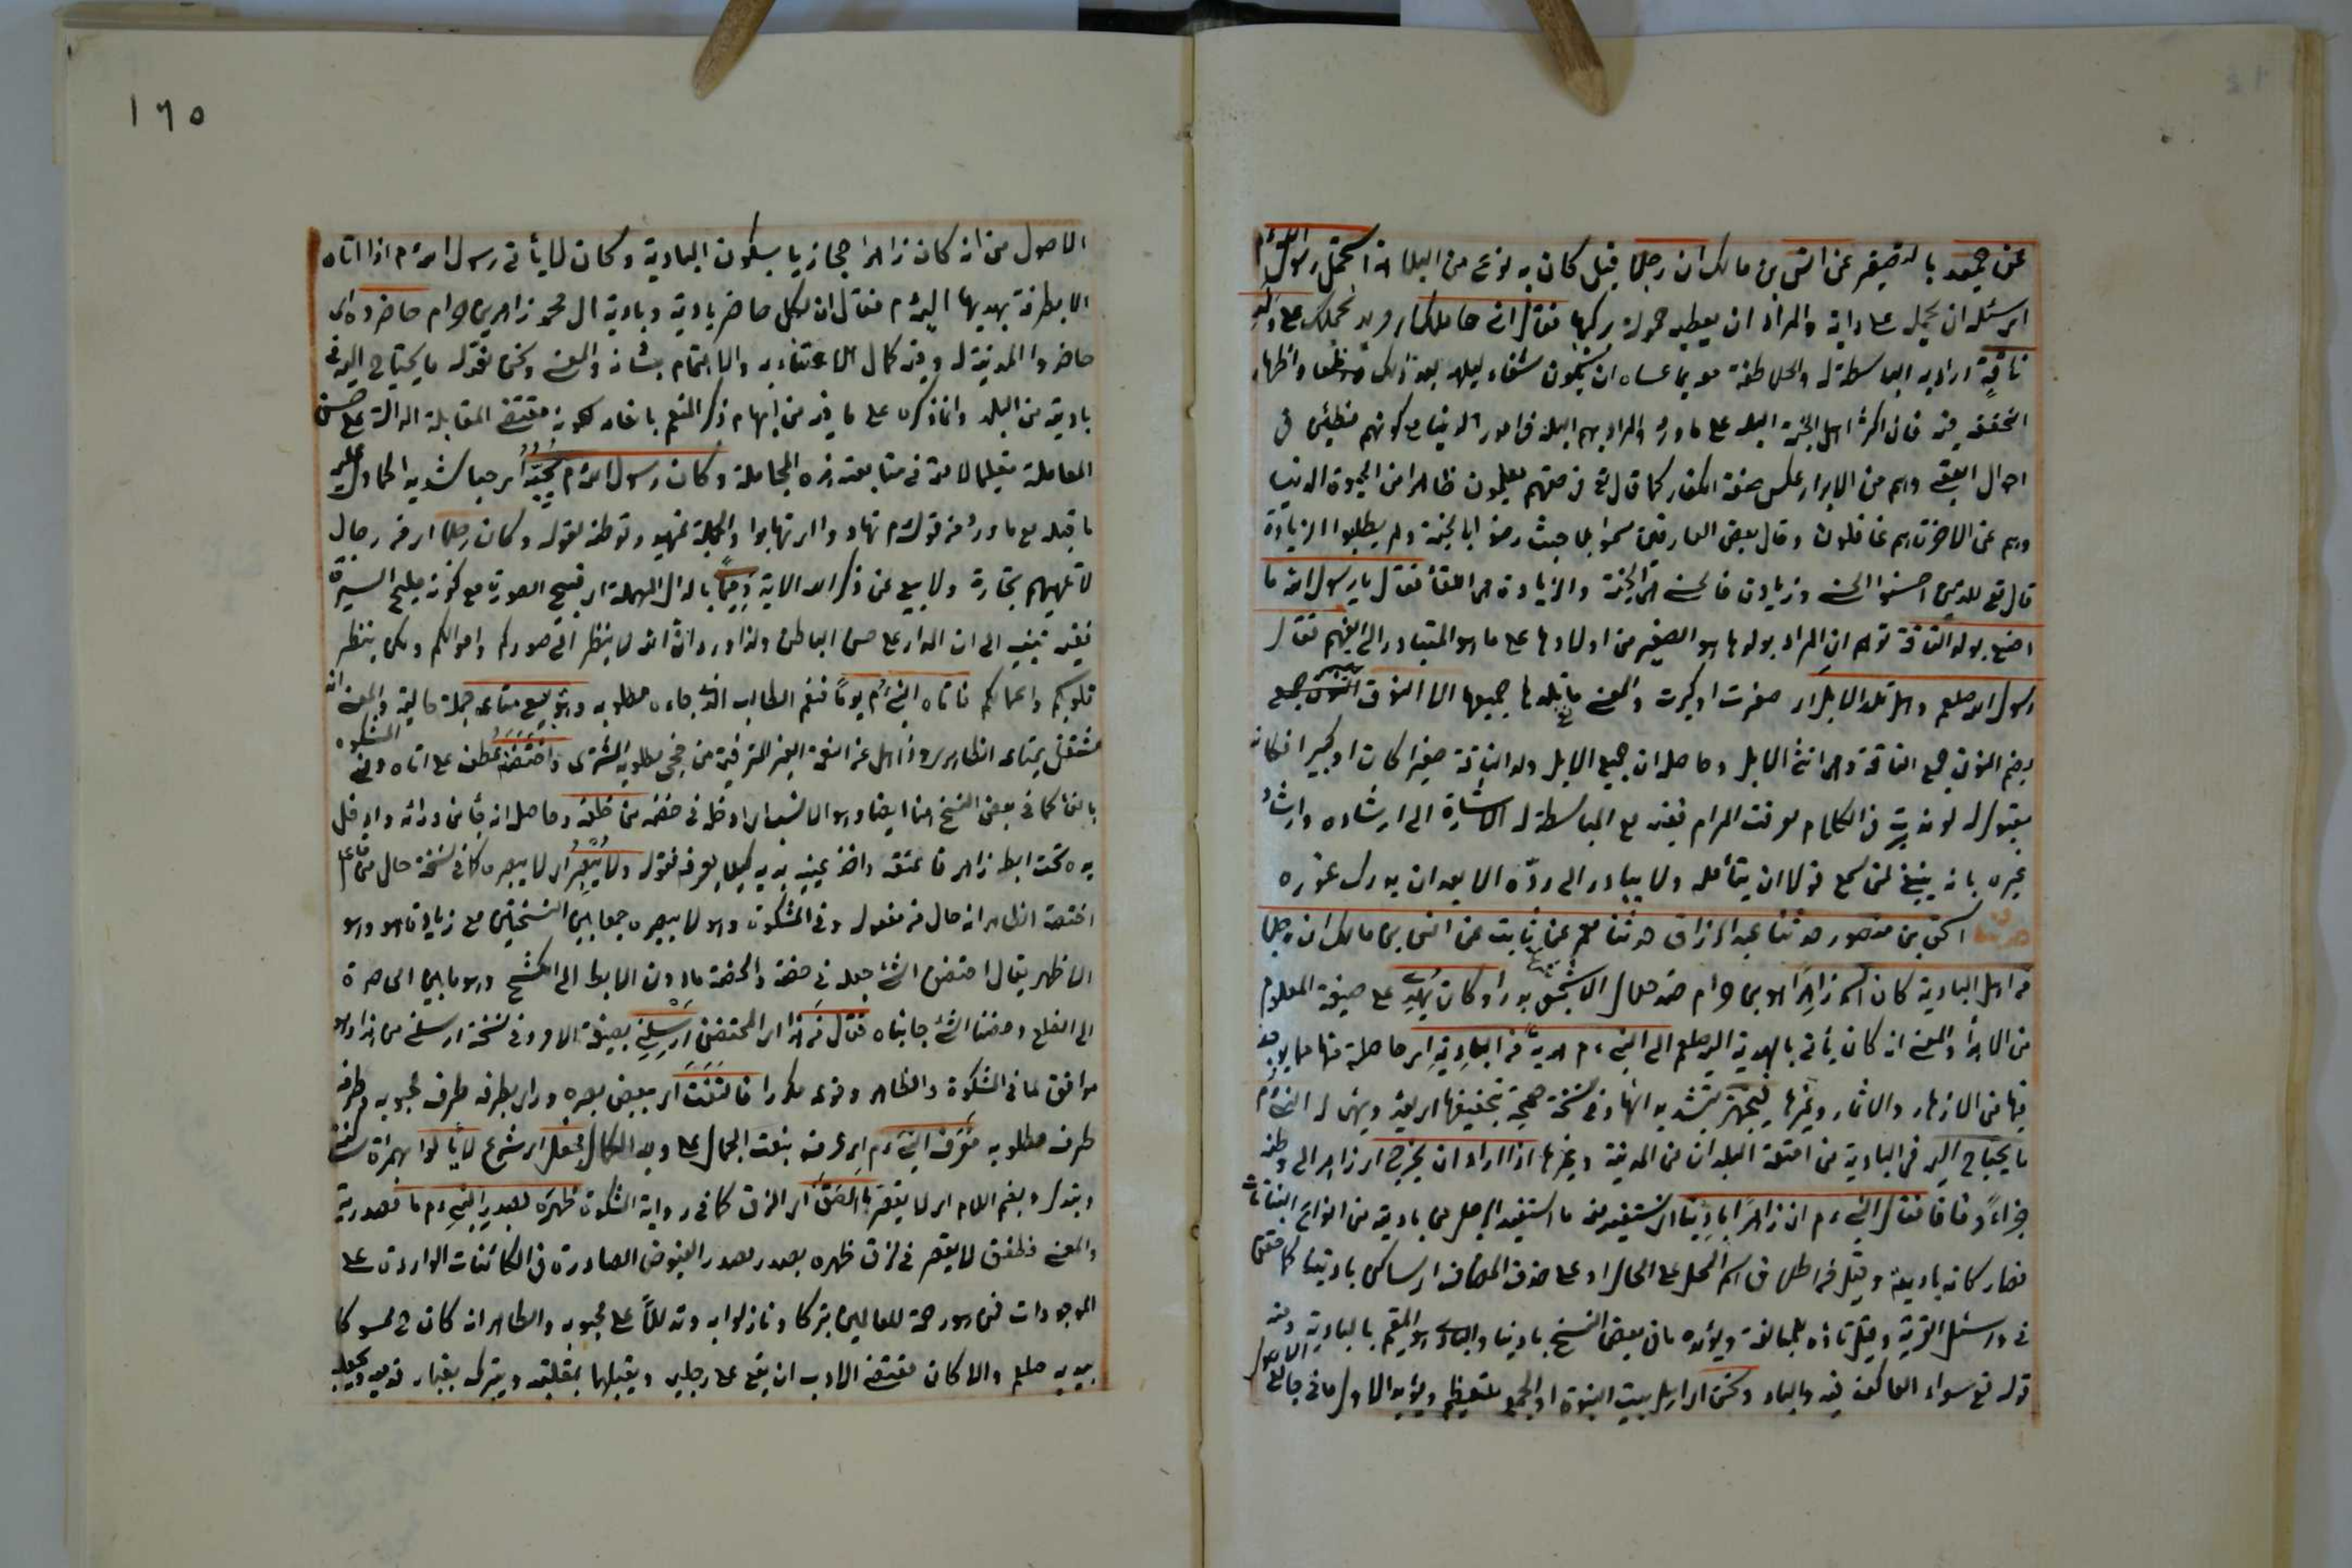 عن حميد بالتصغير عن انس بن مالك ان رجلا قيل كان به نوع من البلاهة استحمل رسول الله م
اي سئله ان يحمله على دابة والمراد ان يعطيه حمولة يركبها فقال اني حاملك اي مريد لحملك على ولد
ناقة اراد به المباسطة له والملاطفة معه بما عساه ان يكون شفاء لبلهه بعد ذلك واظهار
التحقق فيه فان اكثر اهل الجنة البله على ما ورد والمراد بهم البله في امور الدنيا مع كونهم فطنين في
احوال العقبى وهم من الابرار عكس صفة الكفار كما قال تع في حقهم يعلمون ظاهرا من الحيوة الدنيا
وهم عن الاخرة هم غافلون وقال بعض العارفين سموا بلها حيث رضوا بالجنة ولم يطلبوا الزيادة
قال تع للذين احسنوا الحسنى وزيادة فالحسنى هي الجنة والزيادة هي اللقاء فقال يا رسول الله ما
اصنع بولد الناقة توهم ان المراد بولدها هو الصغير من اولادها على ما هو المتبادر الى الفهم فقال
رسول الله صلعم وهل تلد الابل اي صغرت او كبرت والمعنى ما تلدها جميعها الا النوق
بضم النون جمع الناقة وهي انثى الابل وحاصله ان جميع الابل ولد الناقة صغيرا كان او كبيرا فكانه
يقول له لو تدبرت في الكلام لعرفت المرام ففيه مع المباسطة له الاشارة الى ارشاده وارشاد
غيره بانه ينبغي لمن سمع قولا ان يتأمله ولا يبادر الى رده الا بعد ان يدرك غوره
حدثنا اسحق بن منصور حدثنا عبد الرزاق حدثنا معمر عن ثابت عن انس بن مالك ان رجلا
من اهل البادية كان اسمه زاهرا هو بن حرام ضد حلال الاشجعي شهد بدرا وكان يهدي على صيغة المعلوم
من الاهداء والمعنى انه كان يأتي بالهدية اليه صلعم الى النبي م هدية من البادية اي حاصلة منها مما يوجد
فيها من الازهار والاثمار وغيرها فيجهزه بتشديد الهاء وفي نسخة صحيحة بتخفيفها اي يعد ويهيئ له النبي م
ما يحتاج اليه في البادية من امتعة البلدان من المدينة وغيرها اذا اراد ان يخرج اي زاهر الى وطنه
جزاء وفاقا فقال النبي م ان زاهرا باديتنا اي نستفيد منه ما استفيد الرجل من باديته من انواع النباتات
فصار كانه باديته وقيل من اطلاق اسم المحل على الحال او على حذف المضاف اي ساكن باديتنا كما حقق
في واسئل القرية وقيل تاؤه للمبالغة ويؤيده ما في بعض النسخ بادينا والبادي هو المقيم بالبادية ومنه
قوله تع سواء العاكف فيه والباد ونحن اي اهل بيت النبوة او الجمع للتعظيم ويؤيد الاول ما في جامع الاصول
١٦٥
الاصول من انه كان زاهرا حجازيا يسكون البادية وكان لا يأتي رسول الله م اذا اتاه
الا بطرفة يهديها اليه م فقال ان لكل حاضر بادية وبادية ال محمد زاهر بن حرام حاضروه اي
حاضروا المدينة له وفيه كمال الاعتناء به والاهتمام بشانه والمعنى ونحن نعد له ما يحتاج اليه في
باديته من البلد وانما ذكره على ما فيه من ايهام ذكر المنعم بانعامه لكونه مقتضى المقابلة الدالة على حسن
المعاملة تعليما لامته في متابعته هذه المجاملة وكان رسول الله م يحبه اي حبا شديدا كما دل عليه
ما قبله مع ما ورد من قوله م تهادوا تحابوا والجملة تمهيد وتوطئة لقوله وكان رجلا اي من رجال
لا تلهيهم تجارة ولا بيع عن ذكر الله الاية دميما بالدال المهملة اي قبيح الصورة مع كونه مليح السيرة
ففيه تنبيه الى ان المدار على حسن الباطن ولذا ورد ان الله لا ينظر الى صوركم واموالكم ولكن ينظر
قلوبكم واعمالكم فاتاه النبي م يوما فنعم الطالب الذي جاءه مطلوبه وهو يبيع متاعه جملة حالية والمعنى انه
مشتغل بمتاعه الظاهري وذاهل عن النعمة الغير المترقبة من مجئ مطلوبه المشتري واحتضنه عطف على اتاه وفي المشكوة
بالفاء كما في بعض النسخ هنا ايضا وهو الانسب اي ادخله في حضنه من خلفه وحاصله انه جاء من ورائه وادخل
يده تحت ابط زاهر فاعتنقه واخذ عينيه بيديه كيلا يعرفه فقوله ولا يبصر اي لا يبصره كما في نسخة حال من فاعل
احتضنه الظاهر انه حال من مفعوله وفي المشكوة وهو لا يبصره جمعا بين النسختين مع زيادة هو وهو
الاظهر يقال احتضن الشئ جعله في حضنه والحضن ما دون الابط الى الكشح وهو ما بين الخاصرة
الى الضلع وحضنا الشئ جانباه فقال من هذا اي المحتضن ارسلني بصيغة الامر وفي نسخة ارسلني من هذا وهو
موافق لما في المشكوة والظاهر وقوعه مكررا فالتفت اي ببعض بصره وراى بطرفه طرف محبوبه وطرفه
طرف مطلوبه فعرف النبي م اي عرفه بنعت الجمال على وجه الكمال فجعل اي شرع لا يألوا بهمزة ساكنة
وتبدل وبضم اللام اي لا يقصر ما الصق اي الزق كما في رواية المشكوة ظهره بصدر النبي م ما مصدرية
والمعنى فطفق لا يقصر في لزق ظهره بصدر مصدر الفيوض الصادرة في الكائنات الواردة على
الموجودات فمن هو رحمة للعالمين تبركا وتلذذا به وتدللا على محبوبه والظاهر انه كان ح ممسوكا
بيديه صلعم والا كان مقتضى الادب ان يقع على رجليه ويقبلهما بمقلتيه ويتبرك بغبار قدميه ويجعله